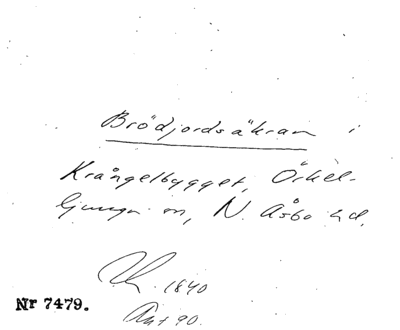 Brödjordsåkran i
Krångelbygget, Örkel-
ljunga sn, N. Åsbo hd.
1840
Akt 90.
Nr 7479.